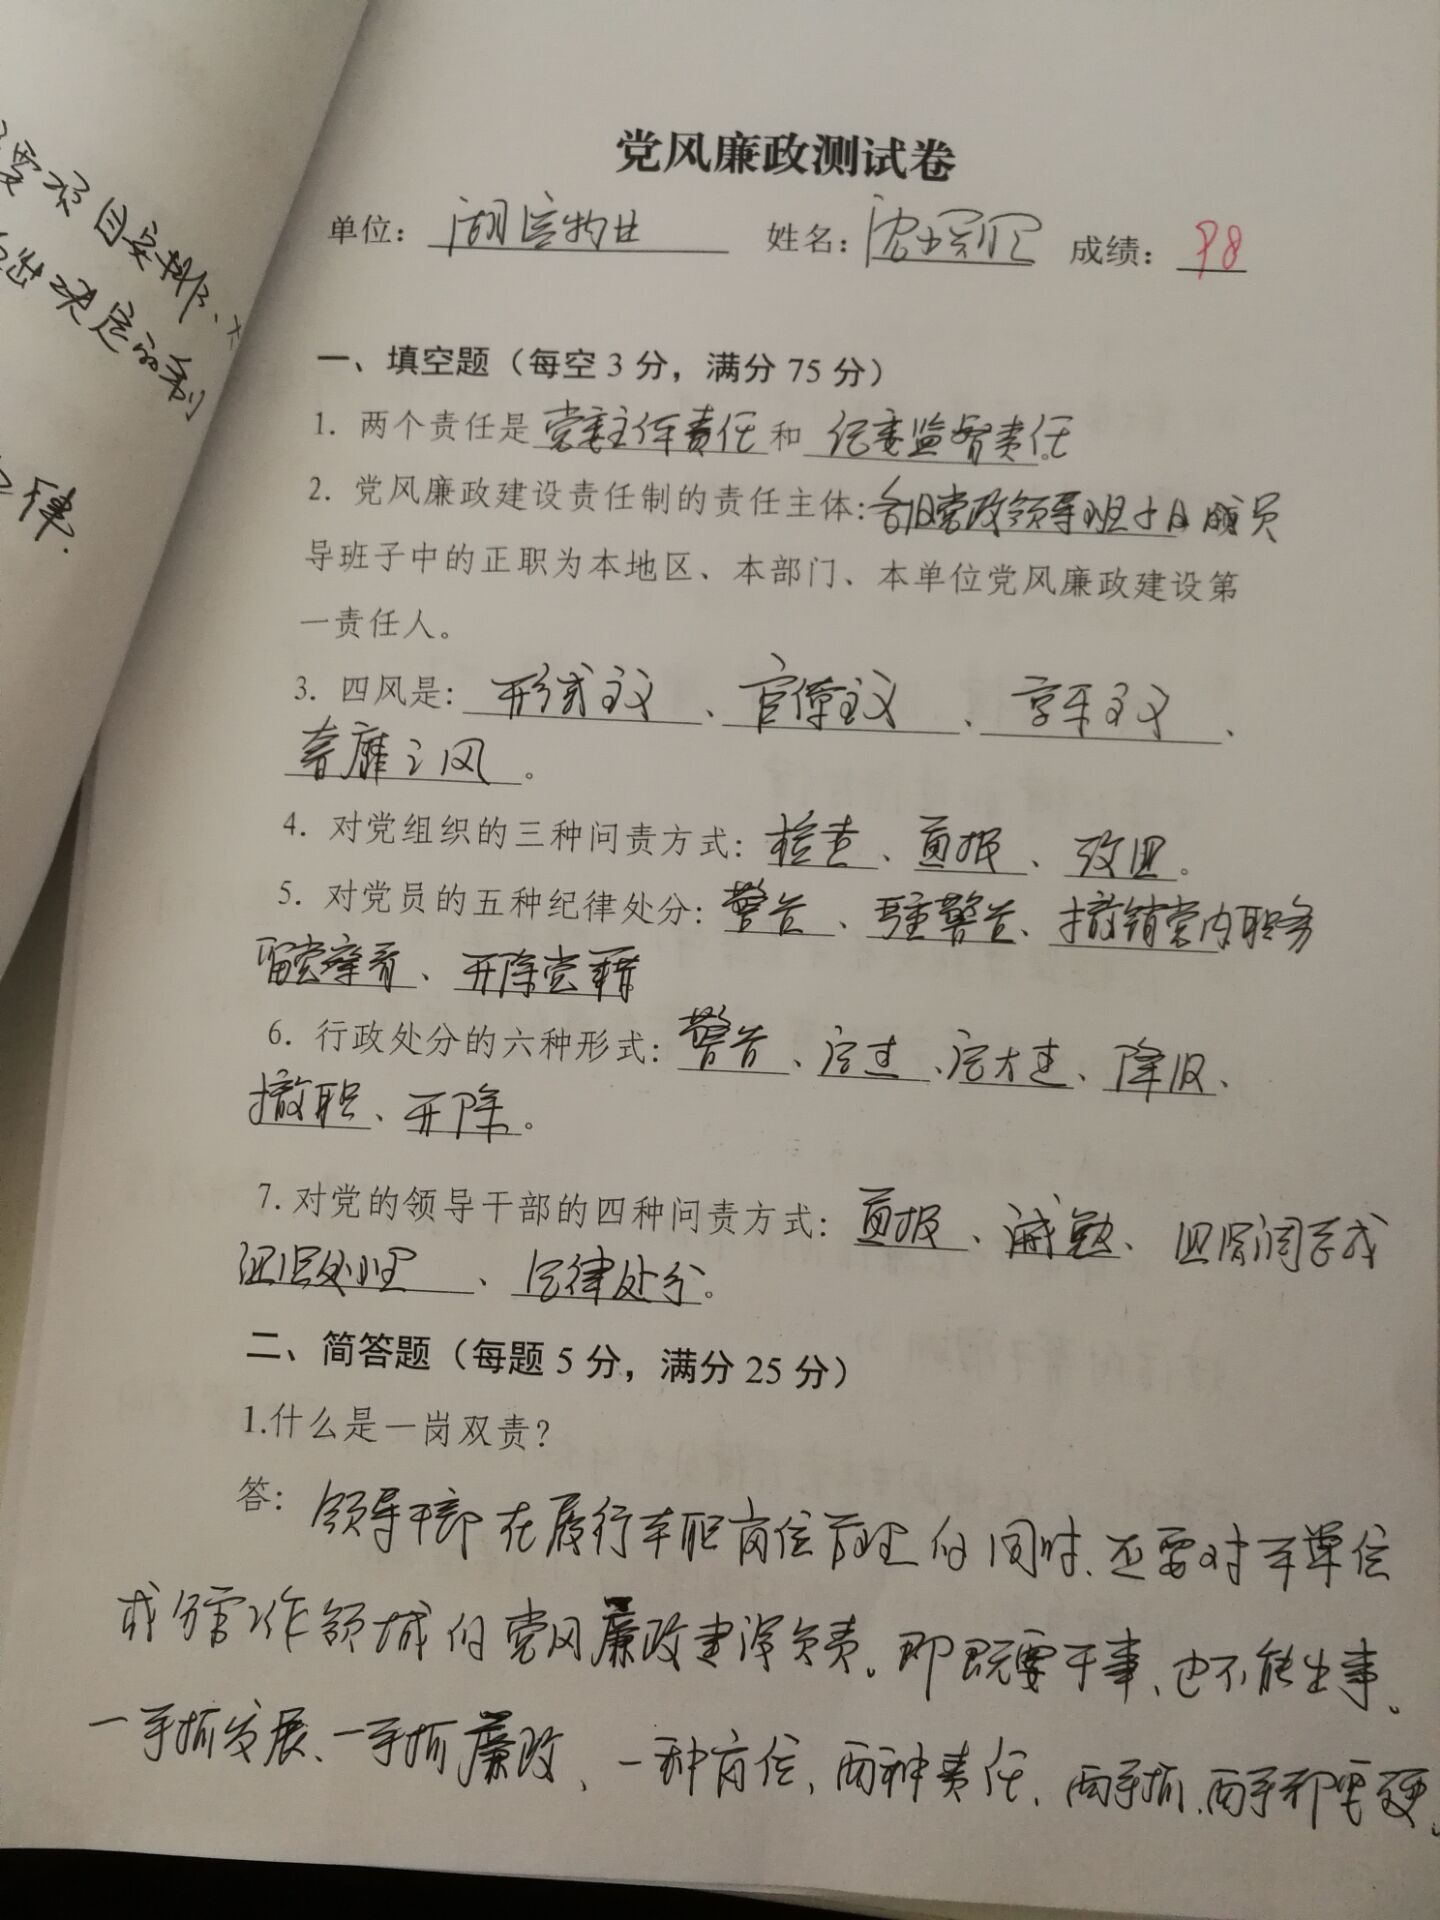 要求 目安排、
出决定的制
律.
党风廉政测试卷
单位: 姓名: 成绩: 98
一、填空题（每空 3 分，满分 75 分）
1. 两个责任是 党委主体责任 和 纪委监督责任。
2. 党风廉政建设责任制的责任主体: 各级党政领导班子及成员
导班子中的正职为本地区、本部门、本单位党风廉政建设第
一责任人。
3. 四风是: 形式主义、官僚主义、享乐主义、
奢靡之风。
4. 对党组织的三种问责方式: 检查、通报、改组。
5. 对党员的五种纪律处分: 警告、严重警告、撤销党内职务
留党察看、开除党籍
6. 行政处分的六种形式: 警告、记过、记大过、降级、
撤职、开除。
7. 对党的领导干部的四种问责方式: 通报、诫勉、组织调整或
组织处理、纪律处分。
二、简答题（每题 5 分，满分 25 分）
1.什么是一岗双责?
答: 领导干部在履行本职岗位管理的同时、还要对本单位
或分管工作领域的党风廉政建设负责。即既要干事、也不能出事。
一手抓发展、一手抓廉政、一种岗位、两种责任、两手抓、两手都要硬。